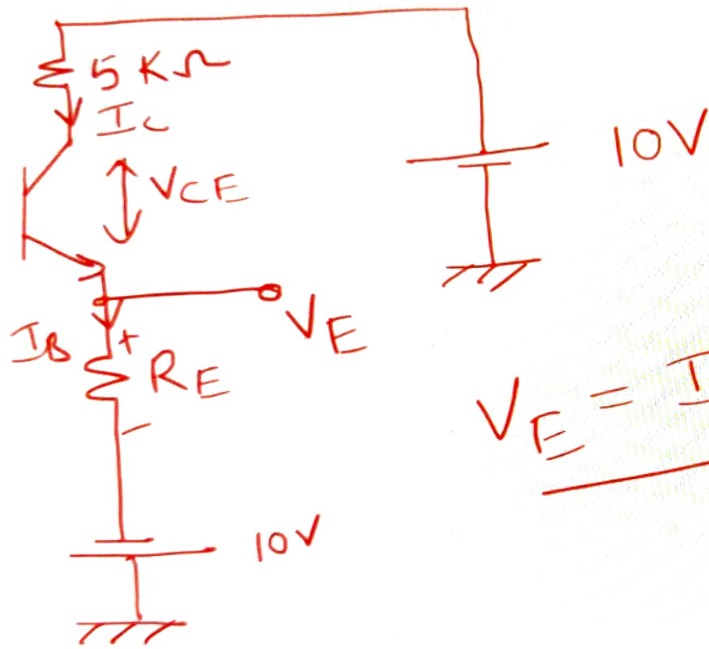 5 KΩ
I_C
V_CE
10V
V_E
I_B
+
R_E
V_E = I
-
10V